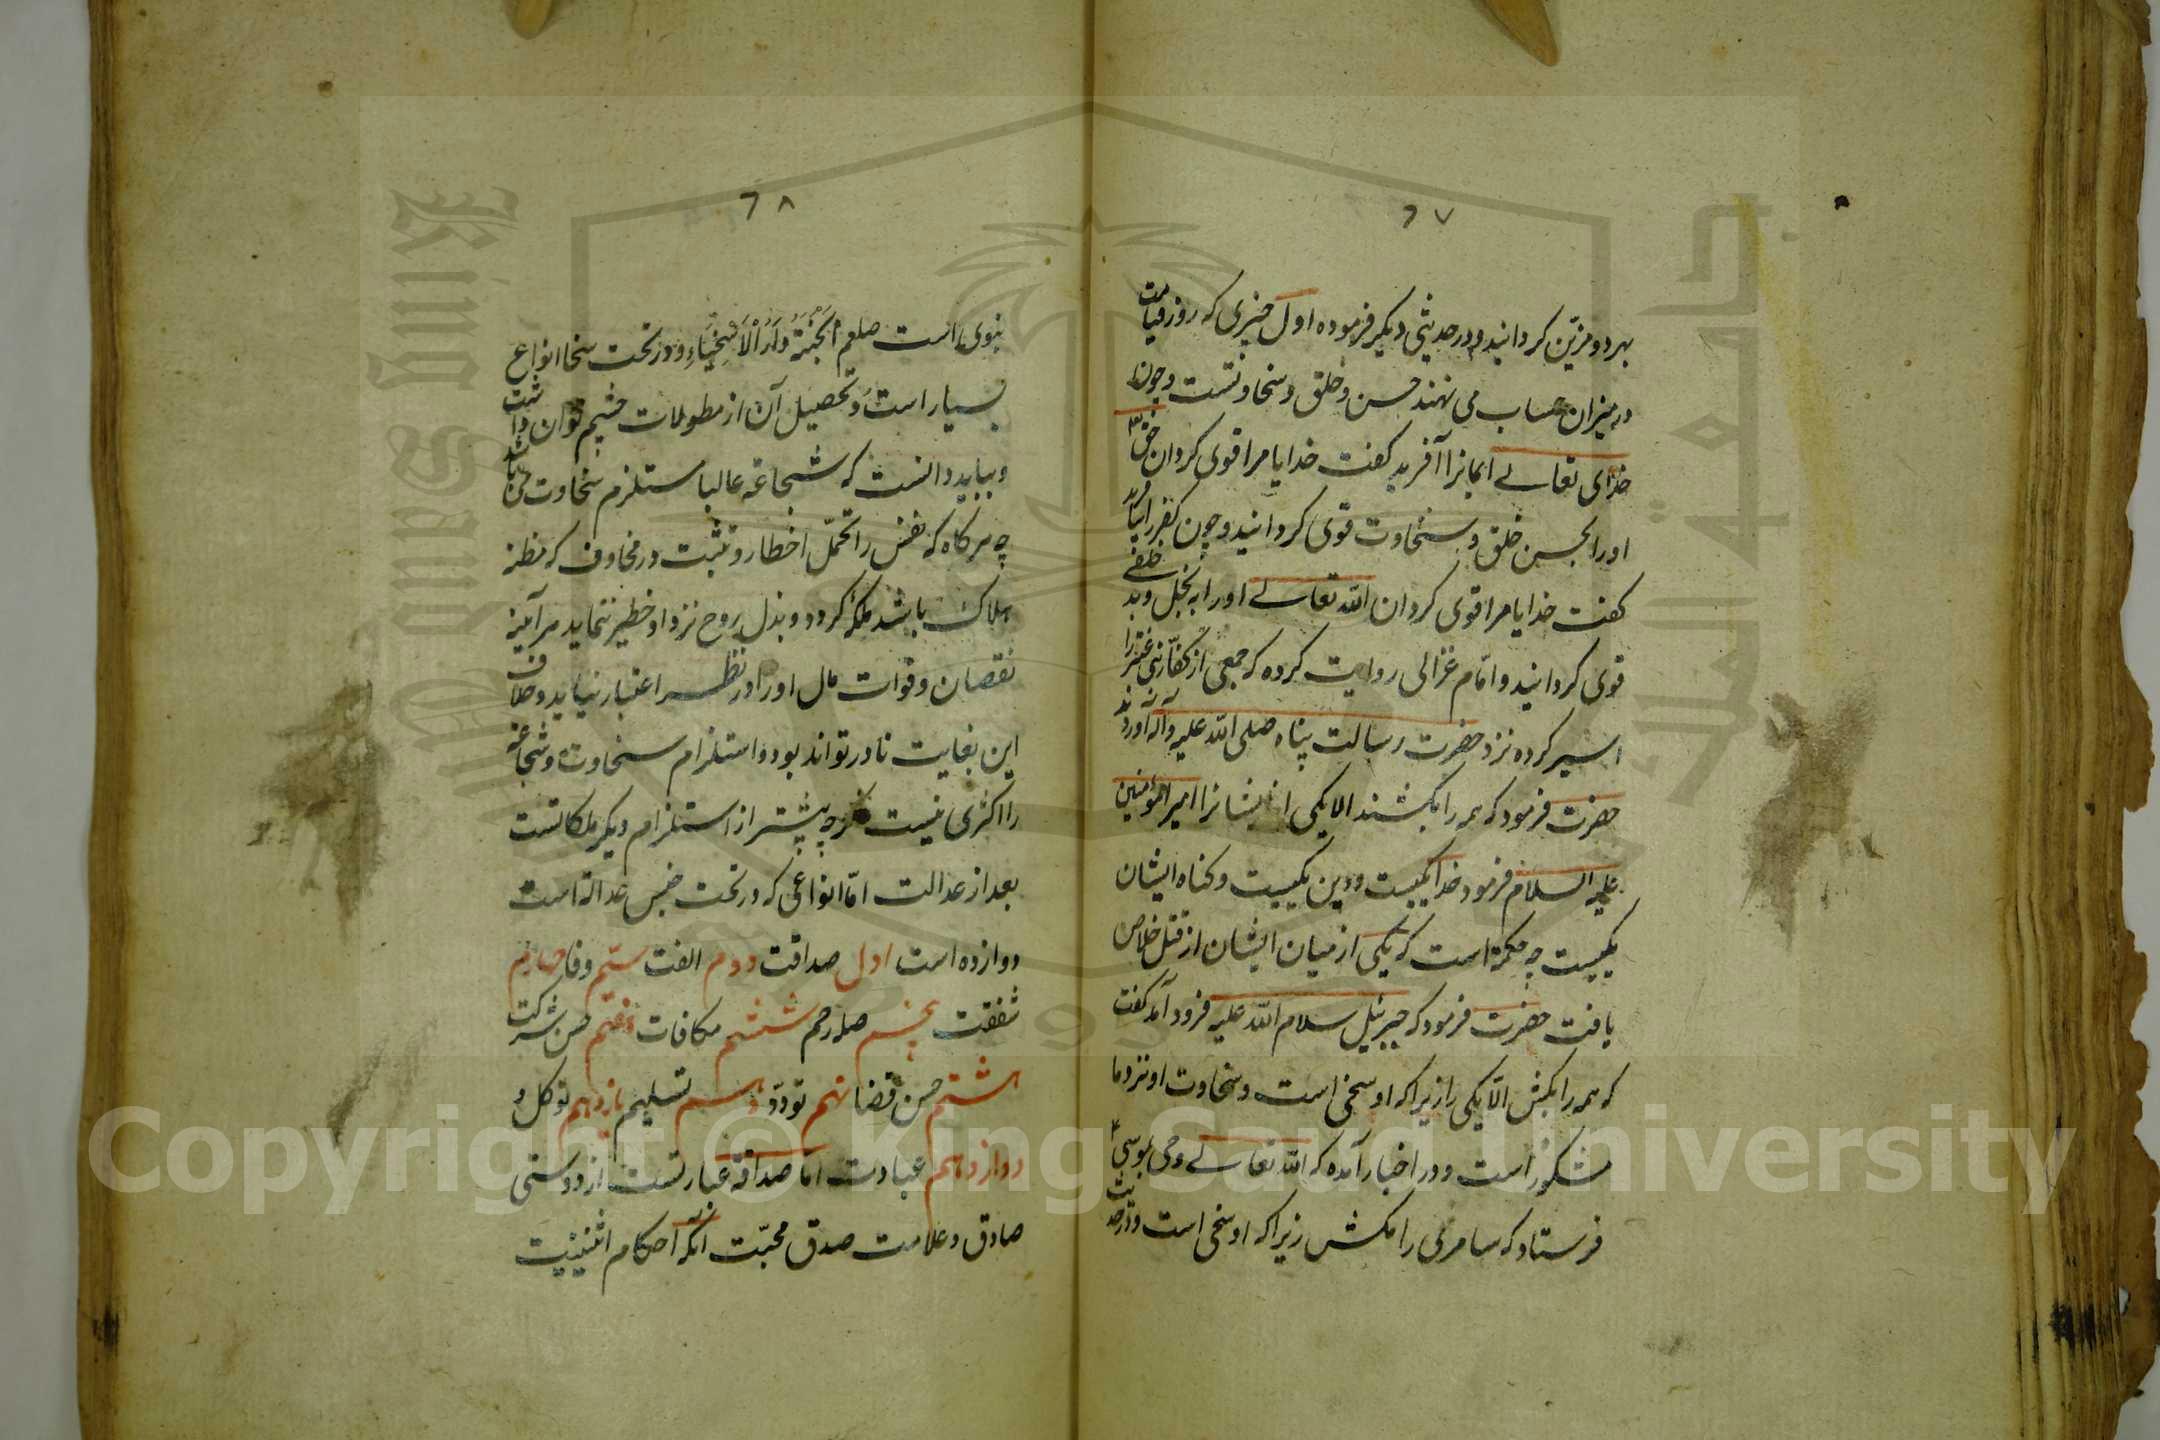 ٦٧
بهر دو مزیّن کردانید و در حدیثی دیکر فرموده اول چیزی که روز قیامت
در میزان حساب می نهند حسن و خلق و سخاوتست و چون
خدای تعالی ایمانرا آفرید کفت خدایا مرا قوی کردان حق تع
اورا بحسن خلق و سخاوت قوی کردانید و چون کفر را بیافرید
کفت خدایا مرا قوی کردان الله تعالی اورا به بخل و بد خلقی
قوی کردانید و امّام غزالی روایت کرده که جمعی از کفّار بنی عنبر را
اسیر کرده نزد حضرت رسالت پناه صلی الله علیه و آله آوردند
حضرت فرمود که همه را بکشند الا یکی از ایشانرا امیر المؤمنین
علیه السلام فرمود خدا یکیست و دین یکیست و کناه ایشان
یکیست چه حکمة است که یکی از میان ایشان از قتل خلاص
یافت حضرت فرمود که جبرئیل سلام الله علیه فرود آمد کفت
که همه را بکش الّا یکی را زیرا که او سخی است و سخاوت او نزد ما
مشکور است و در اخبار آمده که الله تعالی وحی بموسی ع
فرستاد که سامری را مکش زیرا که او سخی است و در حدیث
٦٨
نبوی است صلعم اَلْجَنَّةُ دَارُ الْاَسْخِیَاءِ و در تحت سخا انواع
بسیار است و تحصیل آن از مطولات چشیم توان داشت
و بباید دانست که شجاعة غالبا مستلزم سخاوت می باشد
چه هرکاه که نفس را تحمّل اخطار و تثبت در مخاوف که مظنه
هلاک باشد ملکه کردد و بذل روح نزد او خطیر ننماید هر آینه
نقصان و فوات مال اورا در نظر اعتبار نیاید و خلاف
این بغایت نادر تواند بود و استلزام سخاوة و شجاعة
را اکثری نیست کرچه بیشتر از استلزام دیکر ملکاتست
بعد از عدالت امّا انواعی که در تحت جنس عدالة است
دوازده است اول صداقت دوم الفت سیّم وفا چهارم
شفقت پنجم صله رحم ششم مکافات هفتم حسن شرکت
هشتم حسن قضا نهم تودّد دهم تسلیم یازدهم توکل و
دوازدهم عبادت امّا صداقة عبارتست از دوستی
صادق و علامت صدق محبّت آنکه احکام اثنینیت
Copyright © King Saud University